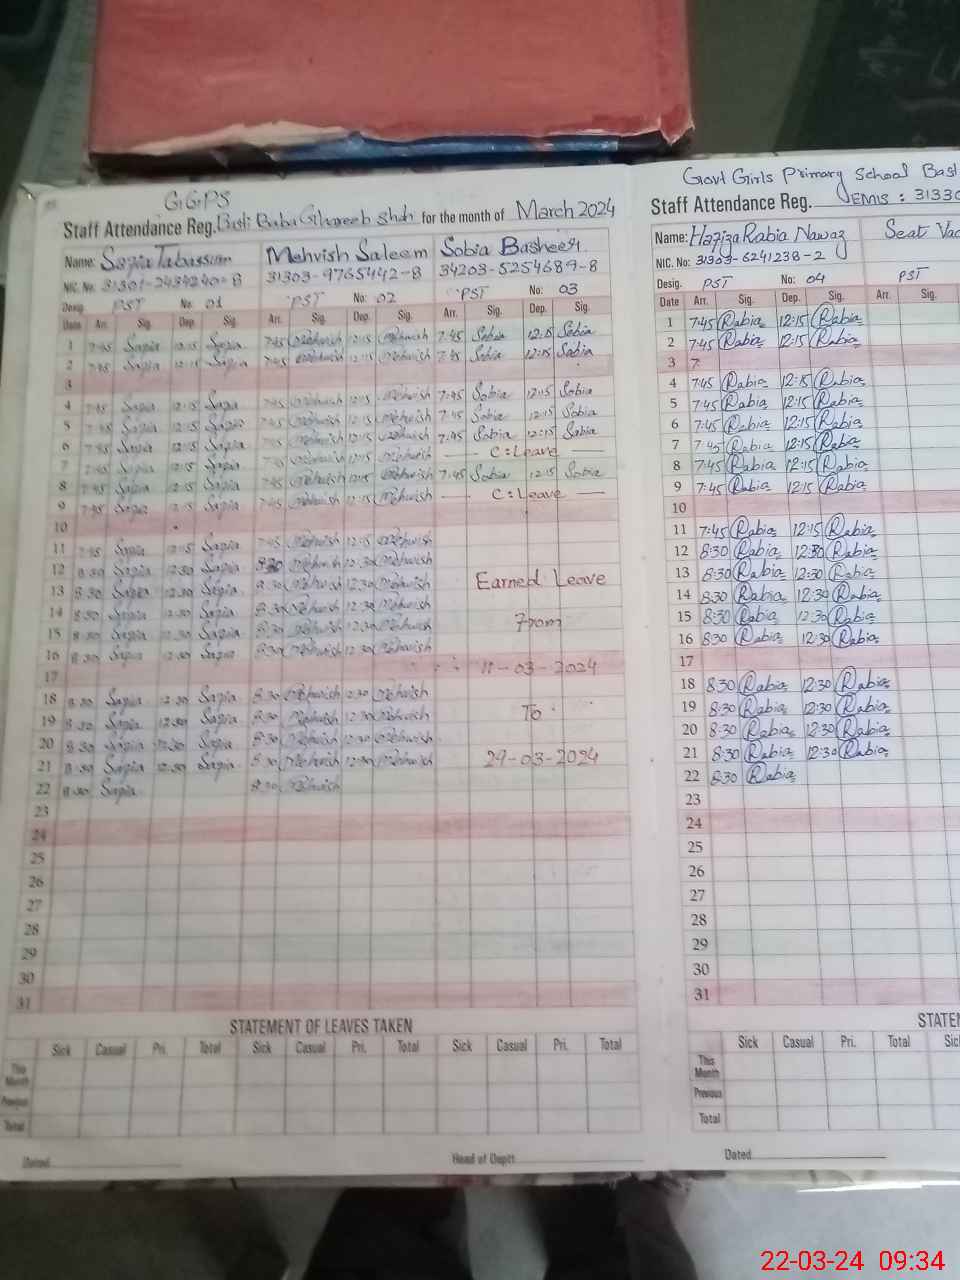 GGPS
Staff Attendance Reg. Basti Baba Ghareeb Shah for the month of March 2024
Name: Sazia Tabassum Mehvish Saleem Sobia Basheer
NIC. No. 31301-2434240-8 31303-9765442-8 34203-5254689-8
Desig. PST No 01 PST No: 02 PST No: 03
Date Arr. Sig. Dep. Sig. Arr. Sig. Dep. Sig. Arr. Sig. Dep. Sig.
1 7:45 Sazia 12:15 Sazia 7:45 Mehwish 12:15 Mehwish 7:45 Sobia 12:15 Sobia
2 7:45 Sazia 12:15 Sazia 7:45 Mehwish 12:15 Mehwish 7:45 Sobia 12:15 Sobia
3
4 7:45 Sazia 12:15 Sazia 7:45 Mehwish 12:15 Mehwish 7:45 Sobia 12:15 Sobia
5 7:45 Sazia 12:15 Sazia 7:45 Mehwish 12:15 Mehwish 7:45 Sobia 12:15 Sobia
6 7:45 Sazia 12:15 Sazia 7:45 Mehwish 12:15 Mehwish 7:45 Sobia 12:15 Sobia
7 7:45 Sazia 12:15 Sazia 7:45 Mehwish 12:15 Mehwish — C:Leave —
8 7:45 Sazia 12:15 Sazia 7:45 Mehwish 12:15 Mehwish 7:45 Sobia 12:15 Sobia
9 7:45 Sazia 12:15 Sazia 7:45 Mehwish 12:15 Mehwish — C:Leave —
10
11 7:45 Sazia 12:15 Sazia 7:45 Mehwish 12:15 Mehwish
12 8:30 Sazia 12:30 Sazia 8:30 Mehwish 12:30 Mehwish
13 8:30 Sazia 12:30 Sazia 8:30 Mehwish 12:30 Mehwish Earned Leave
14 8:30 Sazia 12:30 Sazia 8:30 Mehwish 12:30 Mehwish
15 8:30 Sazia 12:30 Sazia 8:30 Mehwish 12:30 Mehwish From
16 8:30 Sazia 12:30 Sazia 8:30 Mehwish 12:30 Mehwish
17 11-03-2024
18 8:30 Sazia 12:30 Sazia 8:30 Mehwish 12:30 Mehwish
19 8:30 Sazia 12:30 Sazia 8:30 Mehwish 12:30 Mehwish To
20 8:30 Sazia 12:30 Sazia 8:30 Mehwish 12:30 Mehwish
21 8:30 Sazia 12:30 Sazia 8:30 Mehwish 12:30 Mehwish 29-03-2024
22 8:30 Sazia 8:30 Mehwish
23
24
25
26
27
28
29
30
31
STATEMENT OF LEAVES TAKEN
Sick Casual Pri. Total Sick Casual Pri. Total Sick Casual Pri. Total
This Month
Previous
Total
Dated Head of Deptt
Govt Girls Primary School Bast
Staff Attendance Reg. EMIS : 3133
Name: Hafiza Rabia Nawaz Seat Vac
NIC. No: 31303-6241238-2
Desig. PST No: 04 PST
Date Arr. Sig. Dep. Sig. Arr. Sig.
1 7:45 Rabia 12:15 Rabia
2 7:45 Rabia 12:15 Rabia
3 7
4 7:45 Rabia 12:15 Rabia
5 7:45 Rabia 12:15 Rabia
6 7:45 Rabia 12:15 Rabia
7 7:45 Rabia 12:15 Rabia
8 7:45 Rabia 12:15 Rabia
9 7:45 Rabia 12:15 Rabia
10
11 7:45 Rabia 12:15 Rabia
12 8:30 Rabia 12:30 Rabia
13 8:30 Rabia 12:30 Rabia
14 8:30 Rabia 12:30 Rabia
15 8:30 Rabia 12:30 Rabia
16 8:30 Rabia 12:30 Rabia
17
18 8:30 Rabia 12:30 Rabia
19 8:30 Rabia 12:30 Rabia
20 8:30 Rabia 12:30 Rabia
21 8:30 Rabia 12:30 Rabia
22 8:30 Rabia
23
24
25
26
27
28
29
30
31
STATE
Sick Casual Pri. Total Sic
This Month
Previous
Total
Dated
22-03-24 09:34